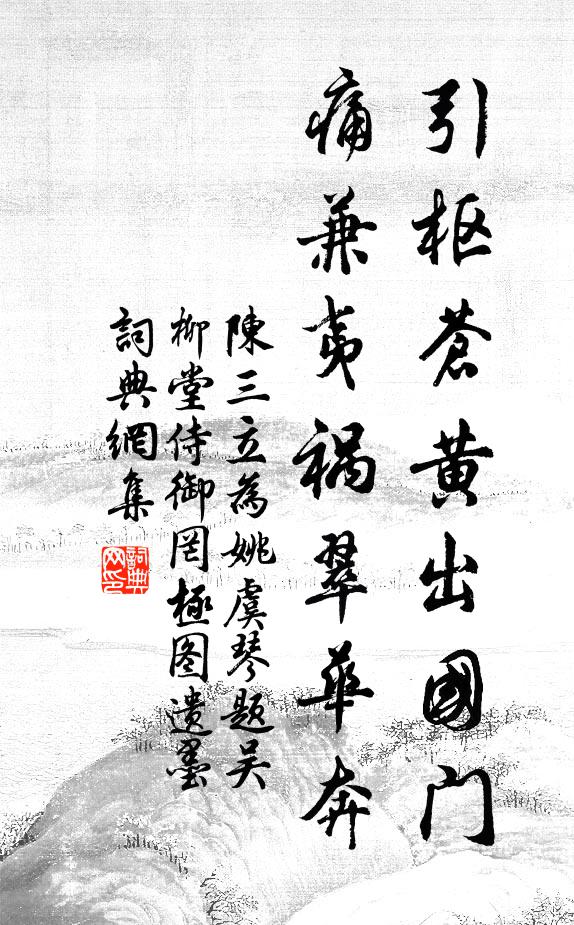 引柩蒼黄出國门
痛兼夷禍翠華奔
陳三立為姚虞琴题吴
柳堂侍御罔極图遗墨
詞典網集
詞典网印